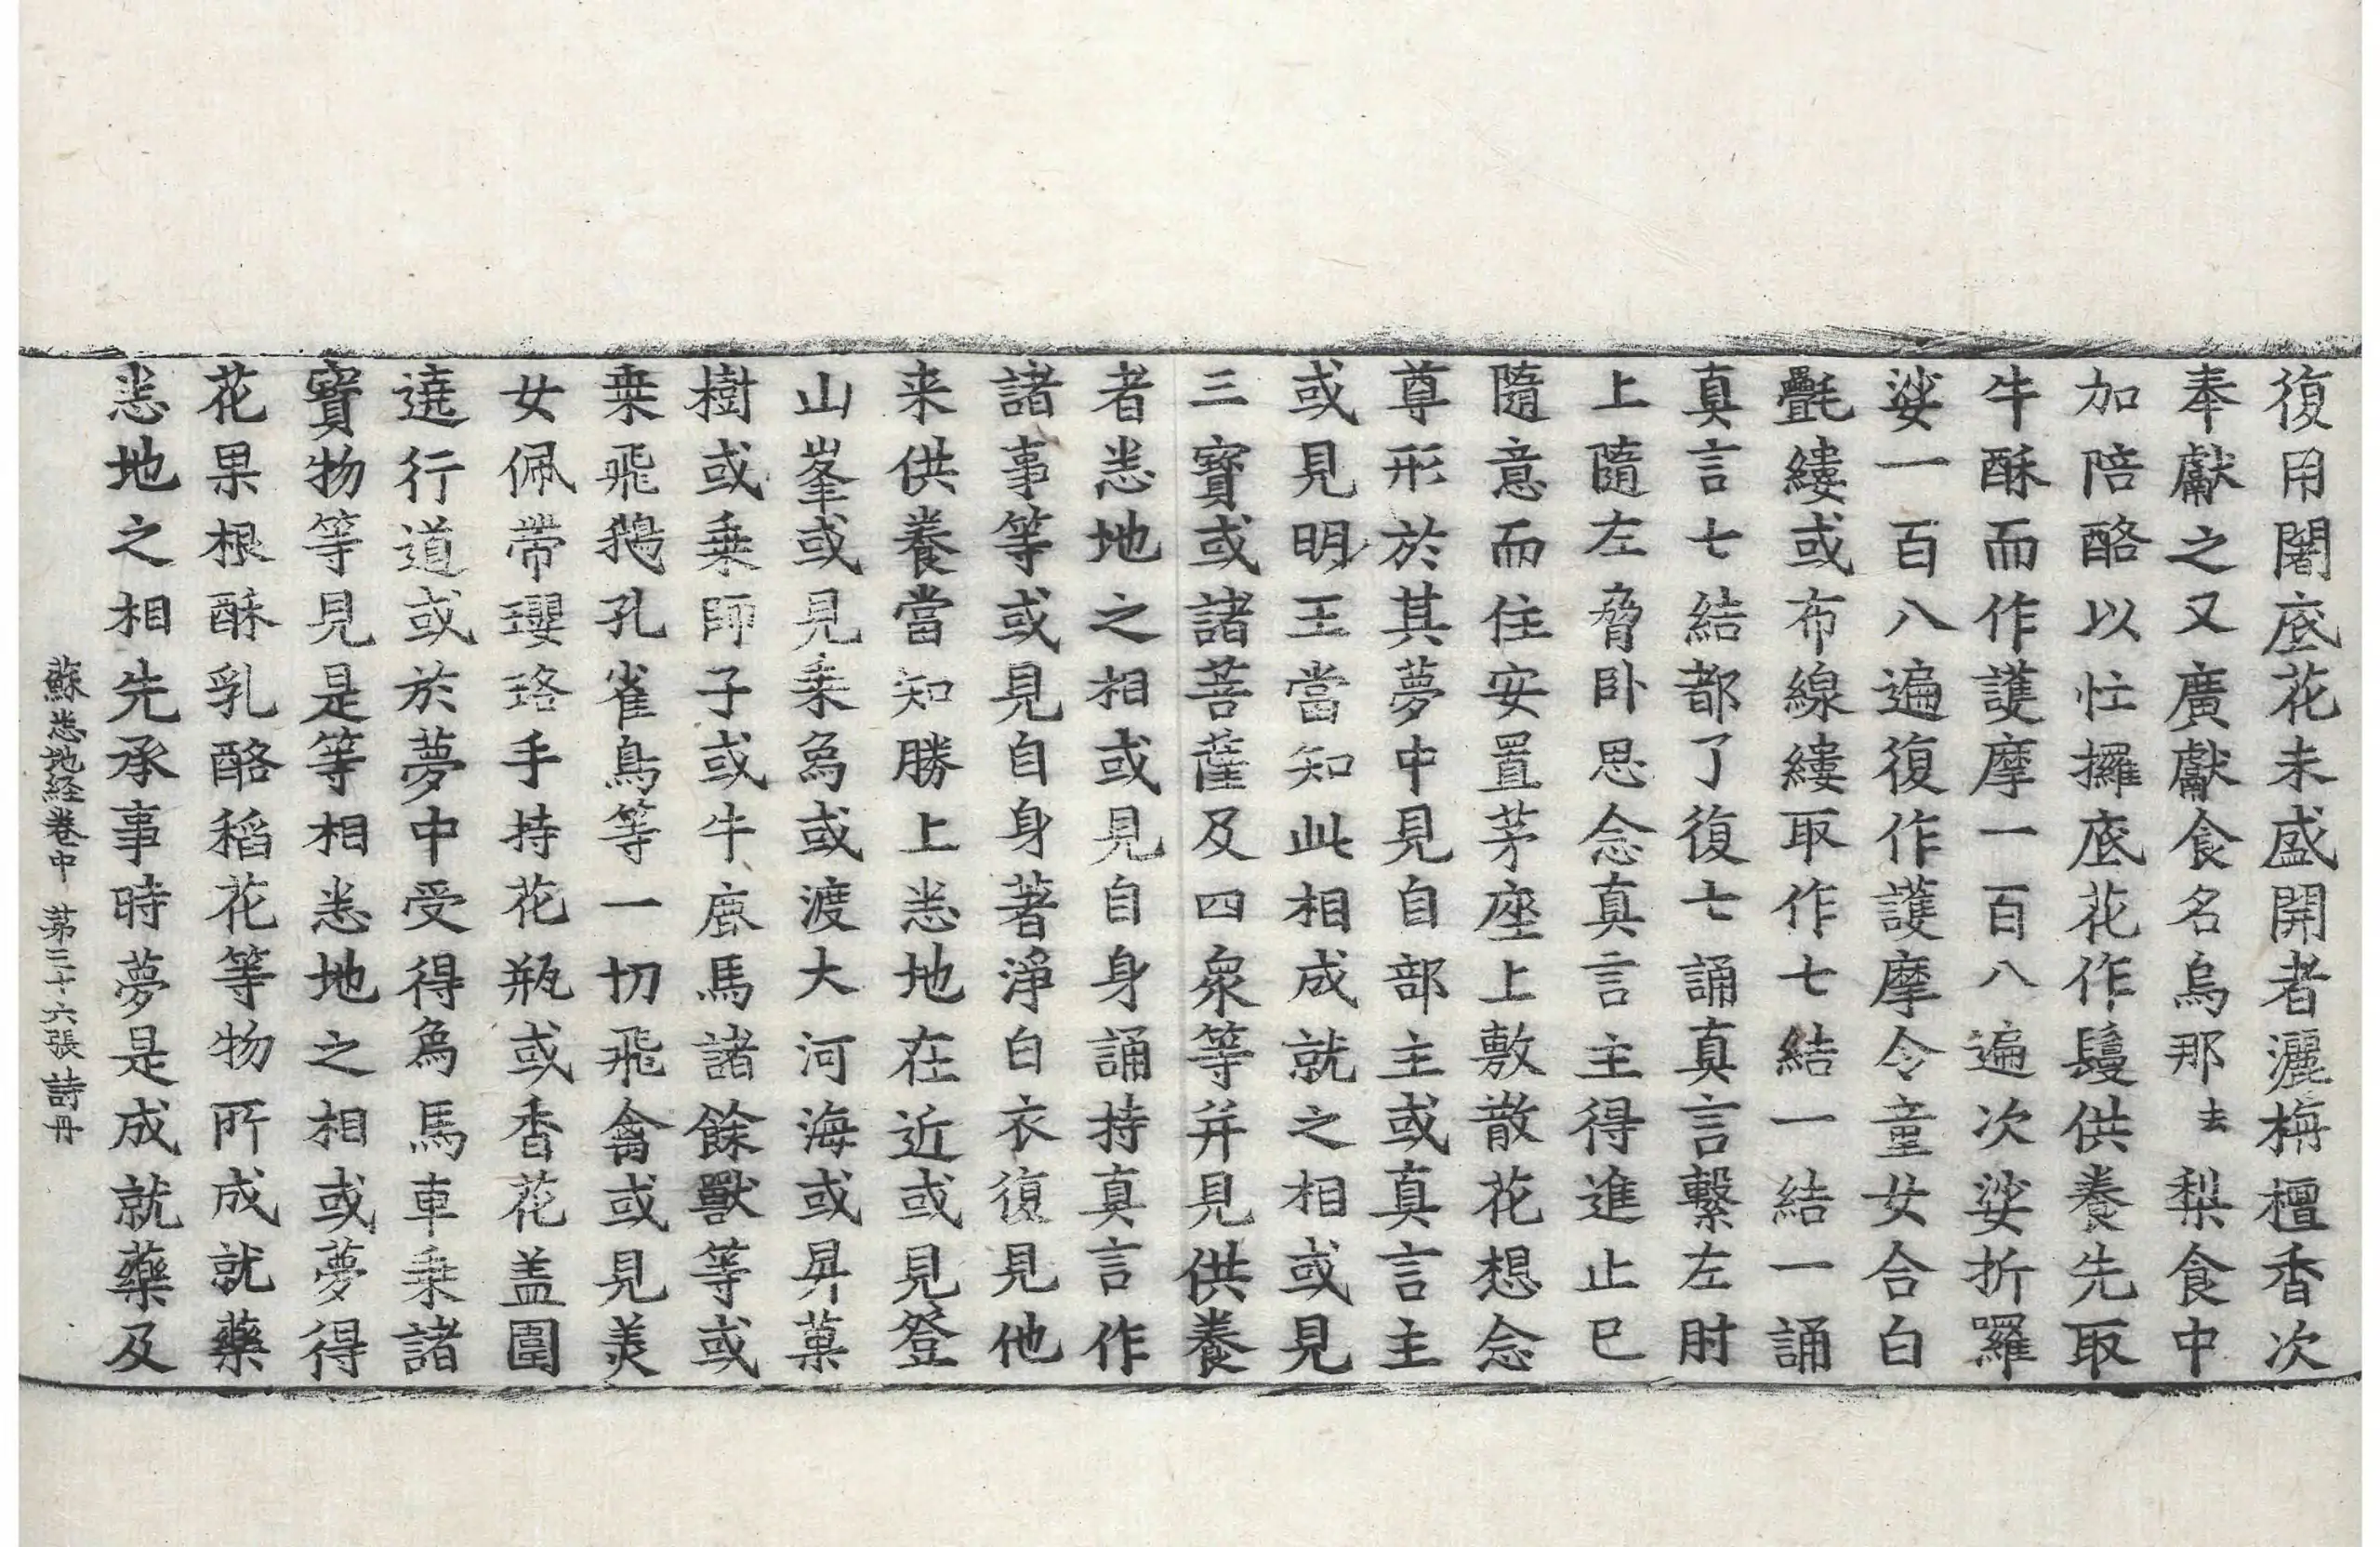 復用闍底花未盛開者灑栴檀香次
奉獻之又廣獻食名烏那去梨食中
加陪酪以忙攞底花作鬘供養先取
牛酥而作護摩一百八遍次娑折羅
娑一百八遍復作護摩令童女合白
㲲縷或布線縷取作七結一結一誦
真言七結都了復七誦真言繫左肘
上隨左脅卧思念真言主得進止已
隨意而住安置茅座上敷散花想念
尊形於其夢中見自部主或真言主
或見明王當知此相成就之相或見
三寶或諸菩薩及四衆等并見供養
者悉地之相或見自身誦持真言作
諸事等或見自身著淨白衣復見他
来供養當知勝上悉地在近或見登
山峯或見乗爲或渡大河海或昇菓
樹或乗師子或牛鹿馬諸餘獸等或
乗飛鵝孔雀鳥等一切飛禽或見美
女佩帶瓔珞手持花瓶或香花盖圍
遶行道或於夢中受得爲馬車乗諸
寳物等見是等相悉地之相或夢得
花果根酥乳酪稻花等物所成就藥
悉地之相先承事時夢是成就藥及
蘇悉地経卷中 第三十六張 詩冊